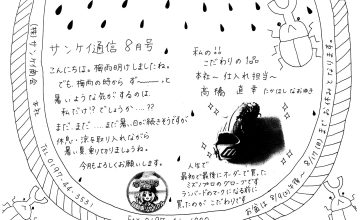 サンケイ通信 8月号
こんにちは。梅雨明けしましたね。
でも、梅雨の時から ず〜〜っと
暑いような気がするのは
私だけ!?でしょうか…??
まだ…まだ…まだ暑い日が続きそうですが
休息・涼を取り入れながら
暑い夏乗り切りましょうね。
今月もよろしくお願いします。
私の!!
こだわりの1品
本社〜仕入れ担当〜
高橋 直幸 たかはしなおゆき
人生で
最初で最後にオーダーで買った
ミズノプロのグローブです
ランバードのマークになる前に
買ったのがこだわりです
(株)サンケイ商会 本社
TEL 0197-44-3531
お盆は8/9(土)午後〜8/17(日)までお休みとなります。